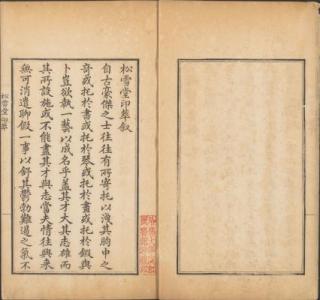 松雪堂印萃叙
自古豪傑之士往往有所寄托以洩其胸中之
奇或托於書或托於琴或托於畫或托於醫與
卜豈欲執一藝以成名乎蓋其才大其志雄而
其所設施或不能盡其才與志當夫情往興來
無可消遣聊假一事以舒其鬱勃難遏之氣不
松雪堂印萃